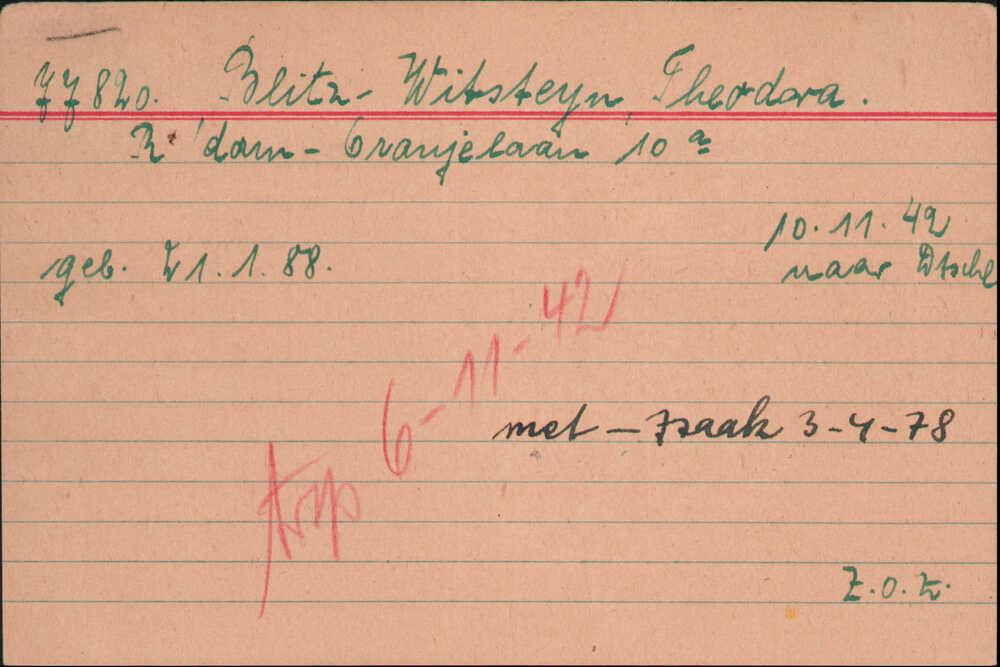 77820. Blitz-Witsteyn, Theodora.
R'dam - Oranjelaan 10 a
10.11.42
geb. 21.1.88.
naar Dtschl
trp 6-11-42
met - Izaak 3-4-78
Z.O.Z.